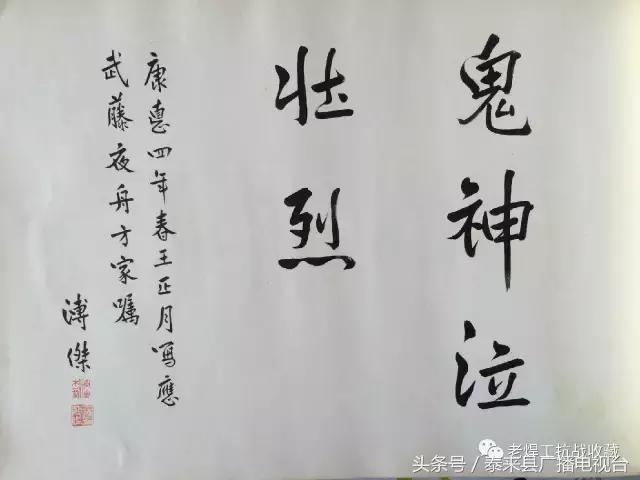 鬼神泣
壮烈
康悳四年春王正月写應
武藤夜舟方家嘱
溥傑
老煋工抗战收藏
头条号／泰来县广播电视台